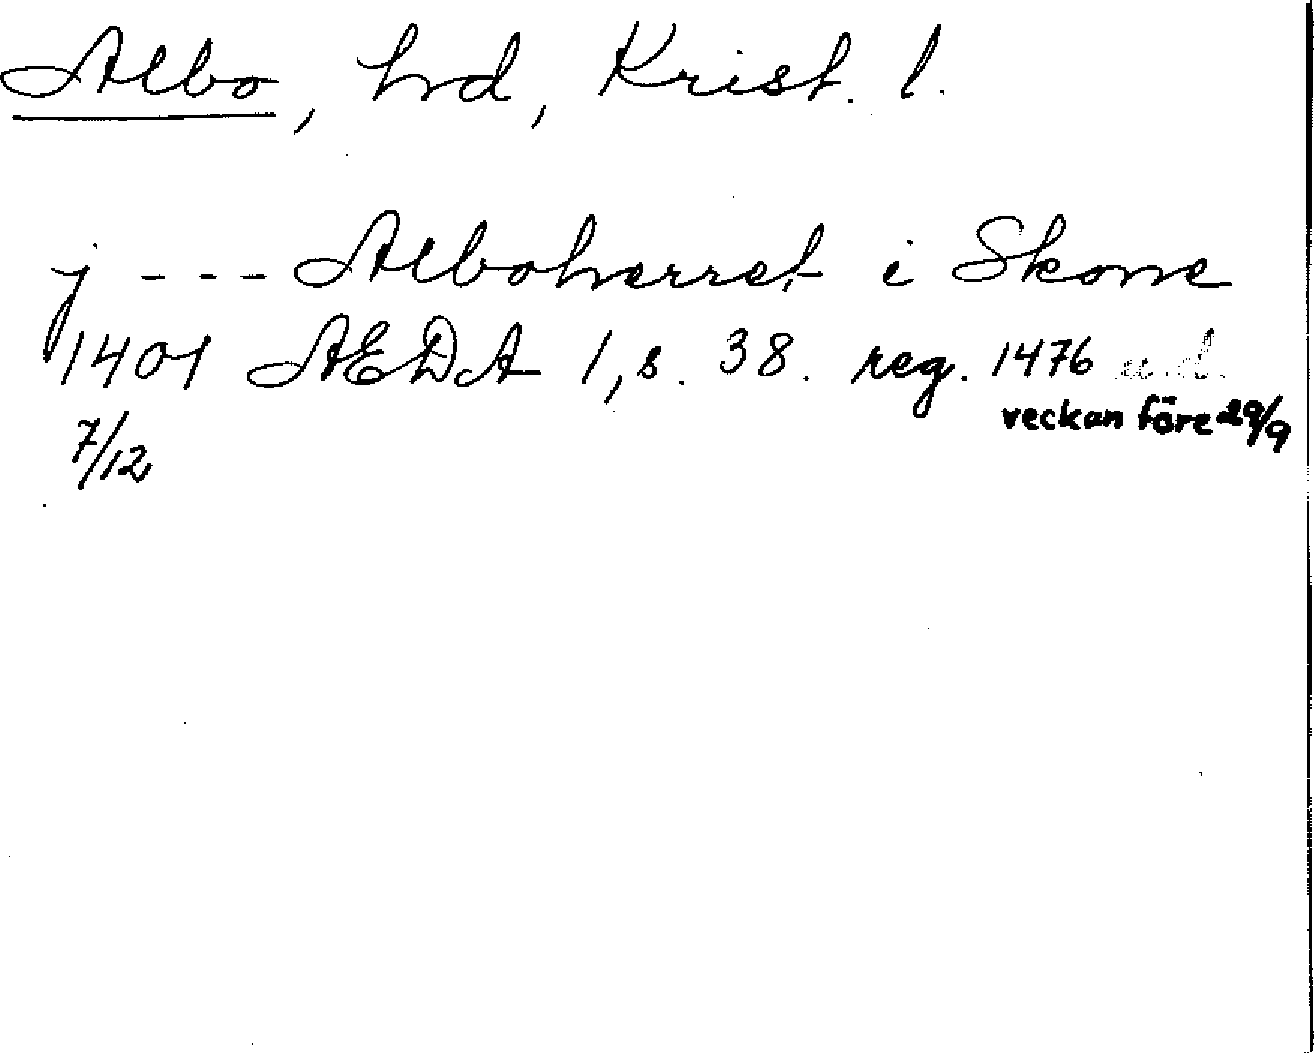 Albo, hrd, Krist. l.
j - - - Alboherret i Skone
1401 AEDA 1, s. 38. reg. 1476 u.d.
veckan före 29/9
7/12